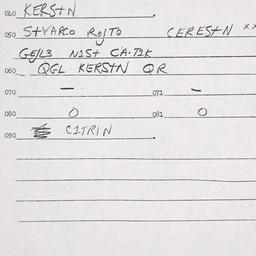 040 KERStN
050 StVARCO RojTO CEREStN xx
GEjL3 NISt CA·TIK
060 QGL KERStN QR
070 — 071 —
080 O 081 O
090 CITRIN